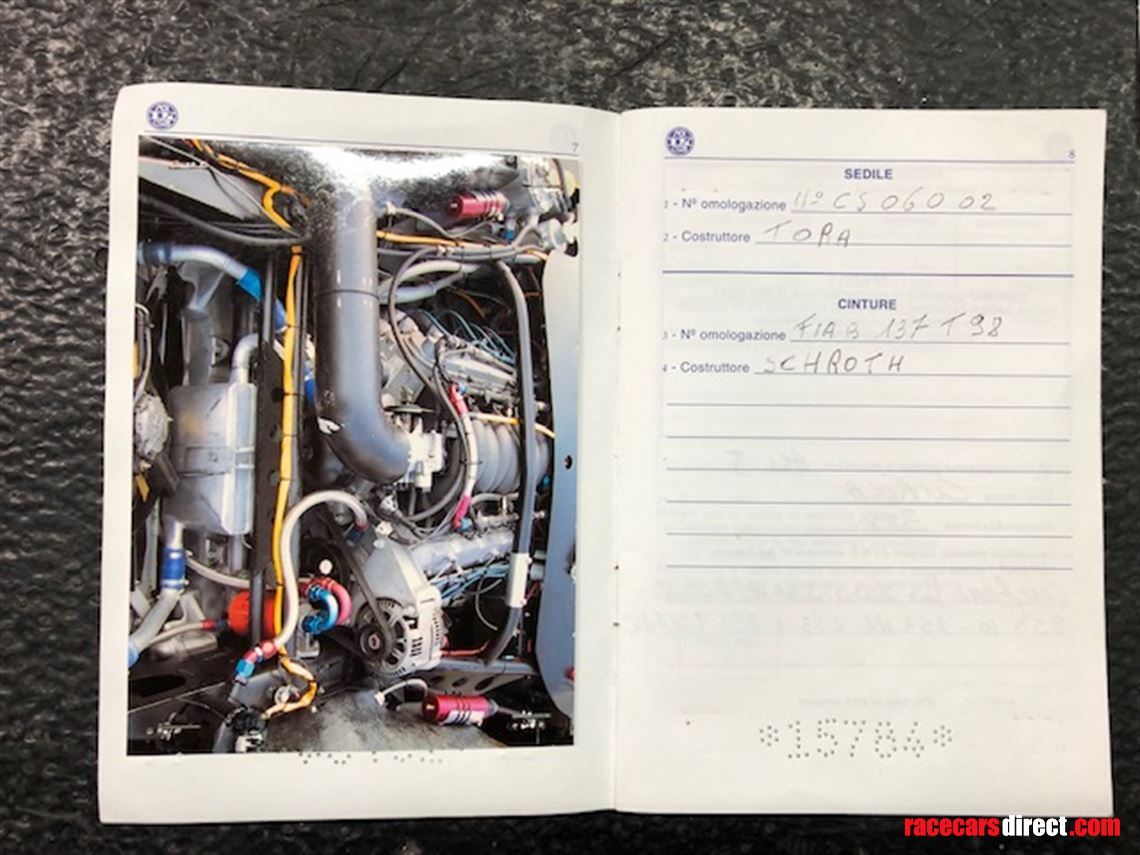 7
8
SEDILE
1 - Nº omologazione Nº CS 060 02
2 - Costruttore TORA
CINTURE
3 - Nº omologazione FIA B 137 T 98
4 - Costruttore SCHROTH
*15784*
racecarsdirect.com